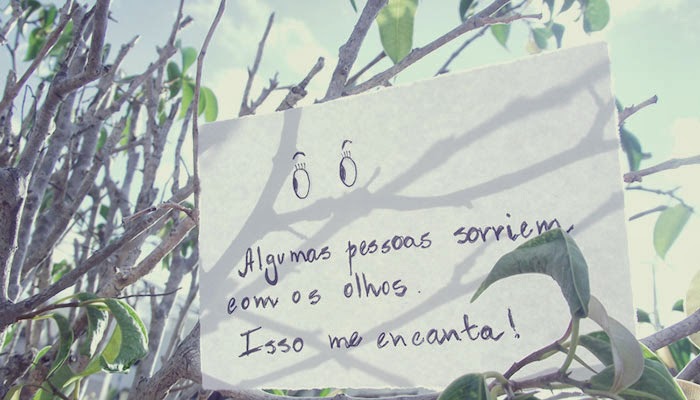 Algumas pessoas sorriem
com os olhos.
Isso me encanta!